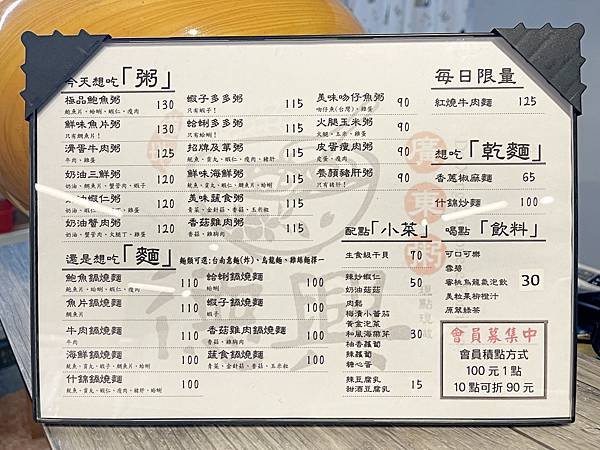 今天想吃「粥」
極品鮑魚粥 130
鮑魚片、蛤蜊、蝦仁、瘦肉
鮮味魚片粥 130
只有鯛魚片!
滑蛋牛肉粥 125
牛肉、雞蛋
奶油三鮮粥 120
奶油、鯛魚片、蟹管肉、蝦子
奶油蝦仁粥 120
奶油蟹肉粥 120
蝦子多多粥 115
只有蝦子!
蛤蜊多多粥 115
只有蛤蜊!
招牌及第粥 115
魷魚、貢丸、蝦仁、瘦肉、豬肝
鮮味海鮮粥 115
美味蔬食粥 115
青菜、金針菇、香菇、玉米粒
香菇雞肉粥 115
香菇、雞胸肉
美味吻仔魚粥 90
吻仔魚(台灣)、雞蛋
火腿玉米粥 90
火腿、玉米、雞蛋
皮蛋瘦肉粥 90
皮蛋、瘦肉
養顏豬肝粥 90
只有豬肝!
每日限量
紅燒牛肉麵 125
想吃「乾麵」
香蔥椒麻麵 65
什錦炒麵 100
還是想吃「麵」
麵類可選:台南意麵(炸)、烏龍麵、雞絲麵擇一
鮑魚鍋燒麵 110
鮑魚片、蛤蜊、蝦仁、瘦肉
魚片鍋燒麵 110
鯛魚片
牛肉鍋燒麵 110
牛肉、雞蛋
海鮮鍋燒麵 100
什錦鍋燒麵 100
魷魚、貢丸、蝦仁、瘦肉、豬肝、蛤蜊
蛤蜊鍋燒麵 100
蛤蜊
蝦子鍋燒麵 100
蝦子
香菇雞肉鍋燒麵 100
香菇、雞胸肉
蔬食鍋燒麵 100
青菜、金針菇、香菇、玉米粒
配點「小菜」
生食級干貝 70
辣炒蝦仁 50
奶油菇菇
肉鬆
梅漬小番茄
黃金泡菜
和風海帶芽 30
柚香蘿蔔
辣蘿蔔
糖心蛋
辣豆腐乳 15
甜酒豆腐乳
喝點「飲料」
可口可樂
雪碧
蜜桃烏龍氣泡飲 30
美粒果柳橙汁
原萃綠茶
會員募集中
會員積點方式
100元1點
10點可折90元
廣東粥
德興
現點現做